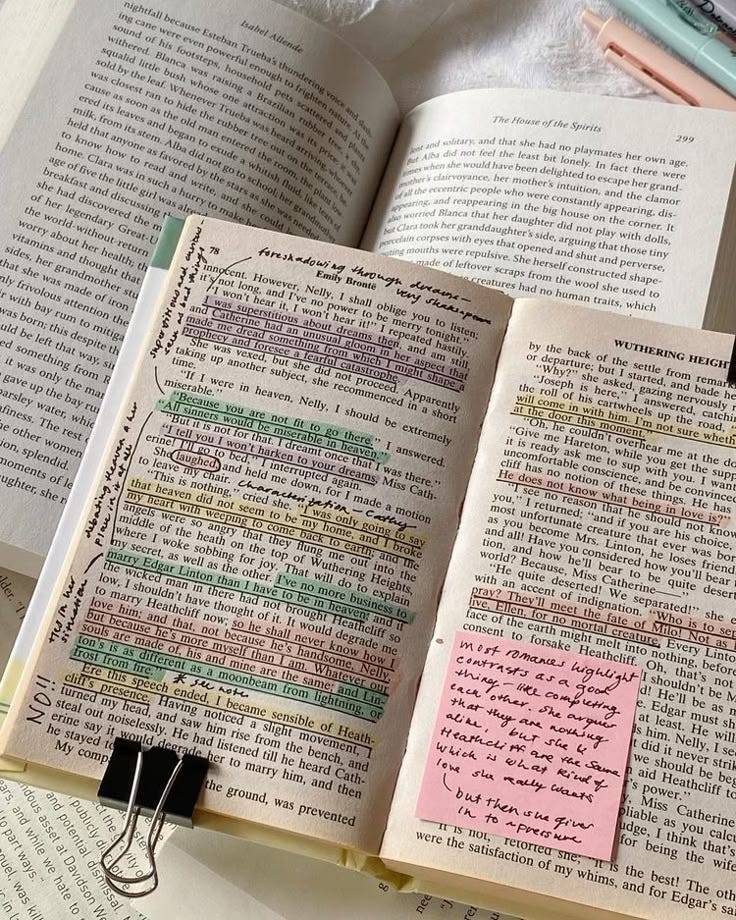 Isabel Allende
nightfall because Esteban Trueba's thundering voice and
ing cane were even powerful enough to frighten nature. At the
sound of his footsteps, household pets scattered and plants
withered. Blanca was raising a Brazilian rubber tree, a
squalid little bush whose one attraction was its
sold by the leaf. Whenever Trueba was heard arriving,
was closest ran to hide the rubber tree out on the terrace,
cause as soon as the old man entered the room, the plant
ered its leaves and began to exude a whitish fluid, like tears
milk, from its stem. Alba did not go to school; her grandmother
held that anyone as favored by the stars as she was needed
to know how to read and write, and she could
home. Clara was in such a hurry to make
age of five the little girl was already
breakfast and discussing
she had discovered the
of her legendary Great-
the world-without-return
worry about her health: the
vitamins and thought the
sides, her grandmother
that she was made of iron
only frivolous attention
air with bay rum to mitigate
was born; this despite
could be left that way, since
ed something from R
it gave up the bay rum
Parsley water, which
the other women
tion, splendid
moments of le
daughter, she r
The House of the Spirits
299
lent and solitary, and that she had no playmates her own age.
But Alba did not feel the least bit lonely. In fact there were
times when she would have been delighted to escape her grand-
mother's clairvoyance, her mother's intuition, and the clamor
of all the eccentric people who were constantly appearing, dis-
appearing, and reappearing in the big house on the corner. It
also worried Blanca that her daughter did not play with dolls,
but Clara took her granddaughter's side, arguing that those tiny
porcelain corpses with eyes that opened and shut and perverse,
pouting mouths were repulsive. She herself constructed shape-
made of leftover scraps from the wool she used to
creatures that had no human traits, which
78
foreshadowing through dreams —
very shakespeare
Emily Brontë
innocent. However, Nelly, I shall oblige you to listen:
it's not long, and I've no power to be merry tonight."
"I won't hear it, I won't hear it!" I repeated hastily.
I was superstitious about dreams then, and am still;
and Catherine had an unusual gloom in her aspect that
made me dread something from which I might shape a
prophecy and foresee a fearful catastrophe.
She was vexed, but she did not proceed. Apparently
taking up another subject, she recommenced in a short
time.
"If I were in heaven, Nelly, I should be extremely
miserable."
"Because you are not fit to go there," I answered.
"All sinners would be miserable in heaven."
"But it is not for that. I dreamt once that I was there."
"I tell you I won't harken to your dreams, Miss Cath-
erine! I'll go to bed," I interrupted again.
She laughed, and held me down, for I made a motion
to leave my chair.
characterization — Cathy
"This is nothing," cried she. "I was only going to say
that heaven did not seem to be my home, and I broke
my heart with weeping to come back to earth; and the
angels were so angry that they flung me out into the
middle of the heath on the top of Wuthering Heights,
where I woke sobbing for joy. That will do to explain
my secret, as well as the other. I've no more business to
marry Edgar Linton than I have to be in heaven; and if
the wicked man in there had not brought Heathcliff so
low, I shouldn't have thought of it. It would degrade me
to marry Heathcliff now; so he shall never know how I
love him: and that, not because he's handsome, Nelly,
but because he's more myself than I am. Whatever our
souls are made of, his and mine are the same; and Lin-
ton's is as different as a moonbeam from lightning, or
frost from fire."
* see note
Ere this speech ended, I became sensible of Heath-
cliff's presence. Having noticed a slight movement, I
turned my head, and saw him rise from the bench, and
steal out noiselessly. He had listened till he heard Cath-
erine say it would degrade her to marry him, and then
he stayed to
My comp
the ground, was prevented
debating heaven & her
place in it at all
this in her
situation
NO!!
WUTHERING HEIGH
by the back of the settle from remar
or departure; but I started, and bade he
"Why?" she asked, gazing nervously r
"Joseph is here," I answered, catchin
the roll of his cartwheels up the road,
will come in with him. I'm not sure wheth
at the door this moment."
"Oh, he couldn't overhear me at the doo
"Give me Hareton, while you get the supp
it is ready ask me to sup with you. I want
uncomfortable conscience, and be convince
cliff has no notion of these things. He has
He does not know what being in love is?"
"I see no reason that he should not know
you," I returned; "and if you are his choice,
most unfortunate creature that ever was bor
as you become Mrs. Linton, he loses friend
and all! Have you considered how you'll bear
tion, and how he'll bear to be quite desert
world? Because, Miss Catherine—"
"He quite deserted! We separated!" she
with an accent of indignation. "Who is to sep
pray? They'll meet the fate of Milo! Not as
live, Ellen, for no mortal creature. Every Linto
face of the earth might melt into nothing, befor
consent to forsake Heathcliff. Oh, that's not
I shouldn't be M
d! He'll be as m
Edgar must sh
him. Nelly, I see
did it never strik
we should be beg
aid Heathcliff to
s power."
, Miss Catherine
pliable as you calcu
udge, I think that's
for being the wife
"It is not," retorted she; "it is the best! The othe
were the satisfaction of my whims, and for Edgar's sa
most romances highlight
contrasts as a good
thing — like completing
each other. She argues
that they are nothing
alike, but she &
Heathcliff are the same
which is what kind of
love she really wants
but then she gives
in to pressure
publicly
to part wors
and while we hate to
dismissing
at David's Won